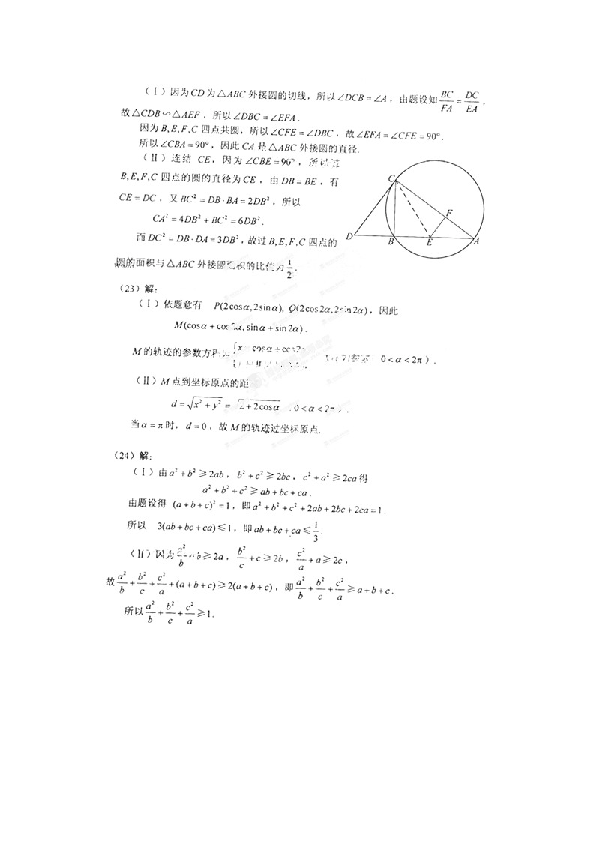 (Ⅰ)因为CD为△ABC外接圆的切线,所以∠DCB=∠A,由题设知 BC/FA = DC/EA,
故△CDB∽△AEF,所以∠DBC=∠EFA.
因为B,E,F,C四点共圆,所以∠CFE=∠DBC,故∠EFA=∠CFE=90°.
所以∠CBA=90°,因此CA是△ABC外接圆的直径.
(Ⅱ)连结CE,因为∠CBE=90°,所以过
B,E,F,C四点的圆的直径为CE,由DB=BE,有
CE=DC,又BC²=DB·BA=2DB²,所以
CA²=4DB²+BC²=6DB².
而DC²=DB·DA=3DB²,故过B,E,F,C四点的
圆的面积与△ABC外接圆面积的比值为 1/2.
C
F
D B E A
(23)解:
(Ⅰ)依题意有 P(2cosα,2sinα), Q(2cos2α,2sin2α),因此
M(cosα+cos2α,sinα+sin2α).
M的轨迹的参数方程 {x=cosα+cos2α 0<α<2π).
(Ⅱ)M点到坐标原点的距
d=√(x²+y²)=√(2+2cosα) (0<α<2π).
当α=π时,d=0,故M的轨迹过坐标原点.
(24)解:
(Ⅰ)由a²+b²≥2ab,b²+c²≥2bc,c²+a²≥2ca得
a²+b²+c²≥ab+bc+ca.
由题设得 (a+b+c)²=1,即a²+b²+c²+2ab+2bc+2ca=1
所以 3(ab+bc+ca)≤1,即ab+bc+ca≤1/3
(Ⅱ)因为 a²/b+b≥2a,b²/c+c≥2b,c²/a+a≥2c,
故 a²/b+b²/c+c²/a+(a+b+c)≥2(a+b+c),即 a²/b+b²/c+c²/a≥a+b+c.
所以 a²/b+b²/c+c²/a≥1.